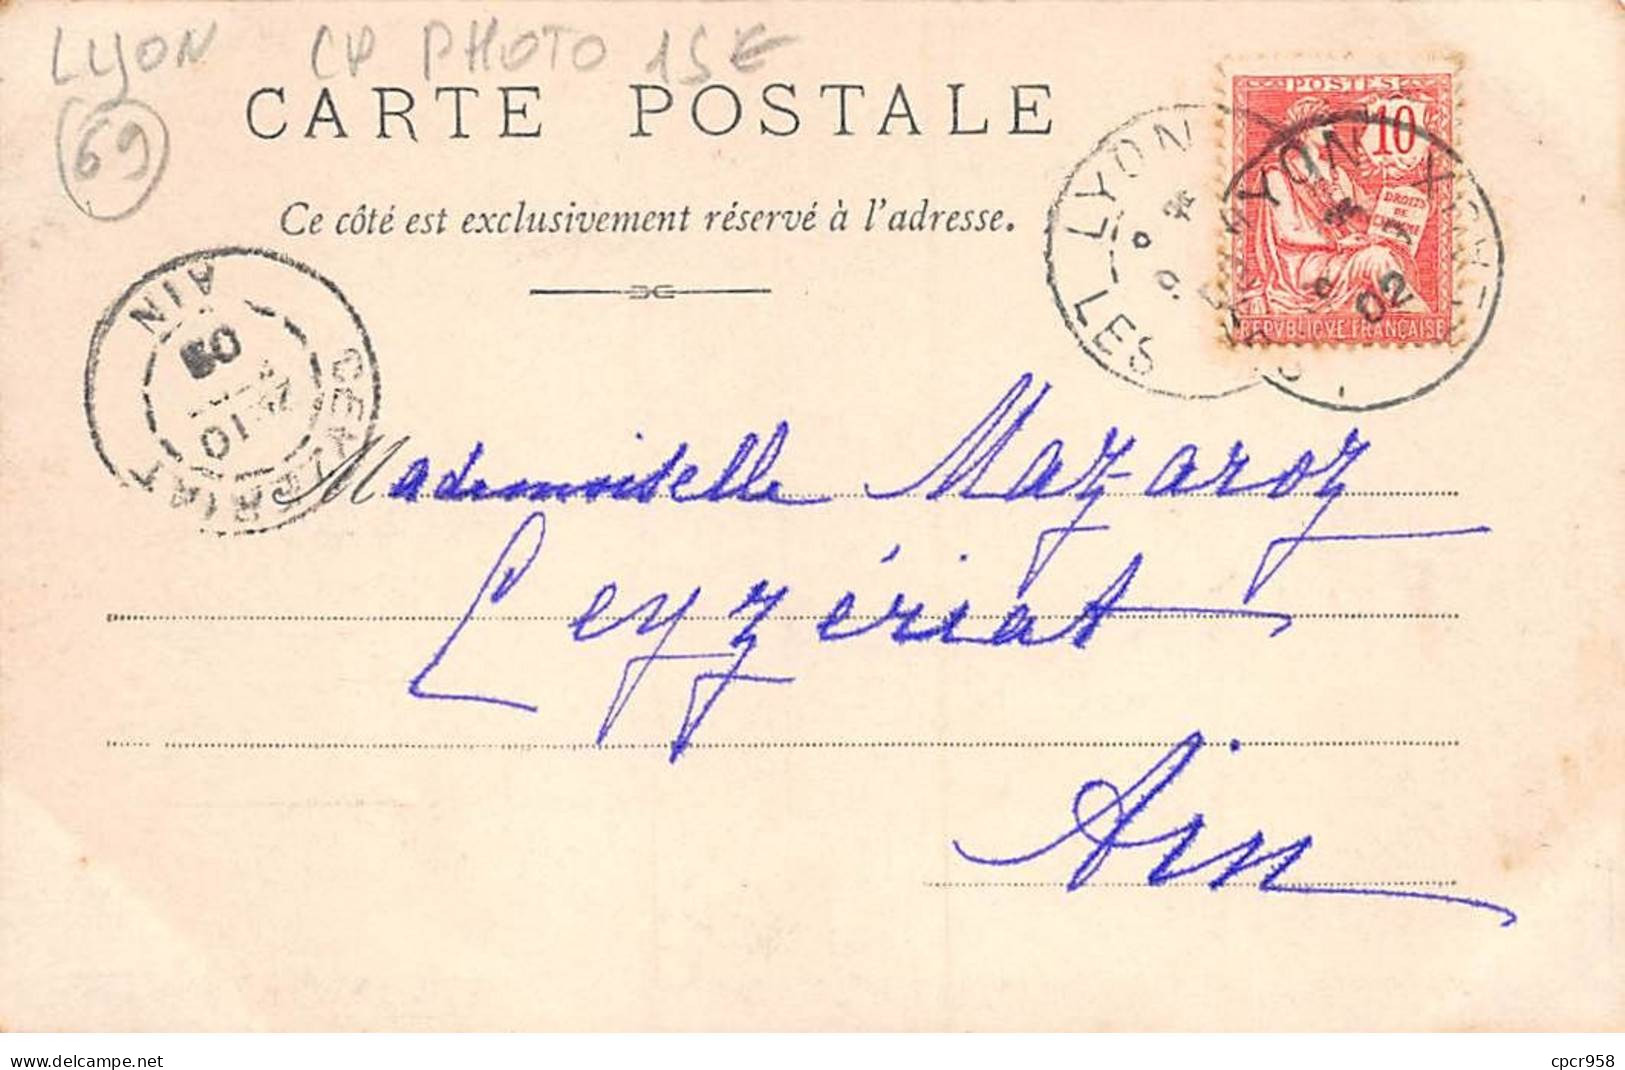 LYON CP PHOTO 15€
69
CARTE POSTALE
Ce côté est exclusivement réservé à l'adresse.
POSTES
10
DROITS
DE
REPVBLIQVE FRANÇAISE
LYON
LES
LYON
02
CEYZERIAT
AIN
Mademoiselle Mazaroz
Ceyzériat
Ain
delcampe.net
cpcr958